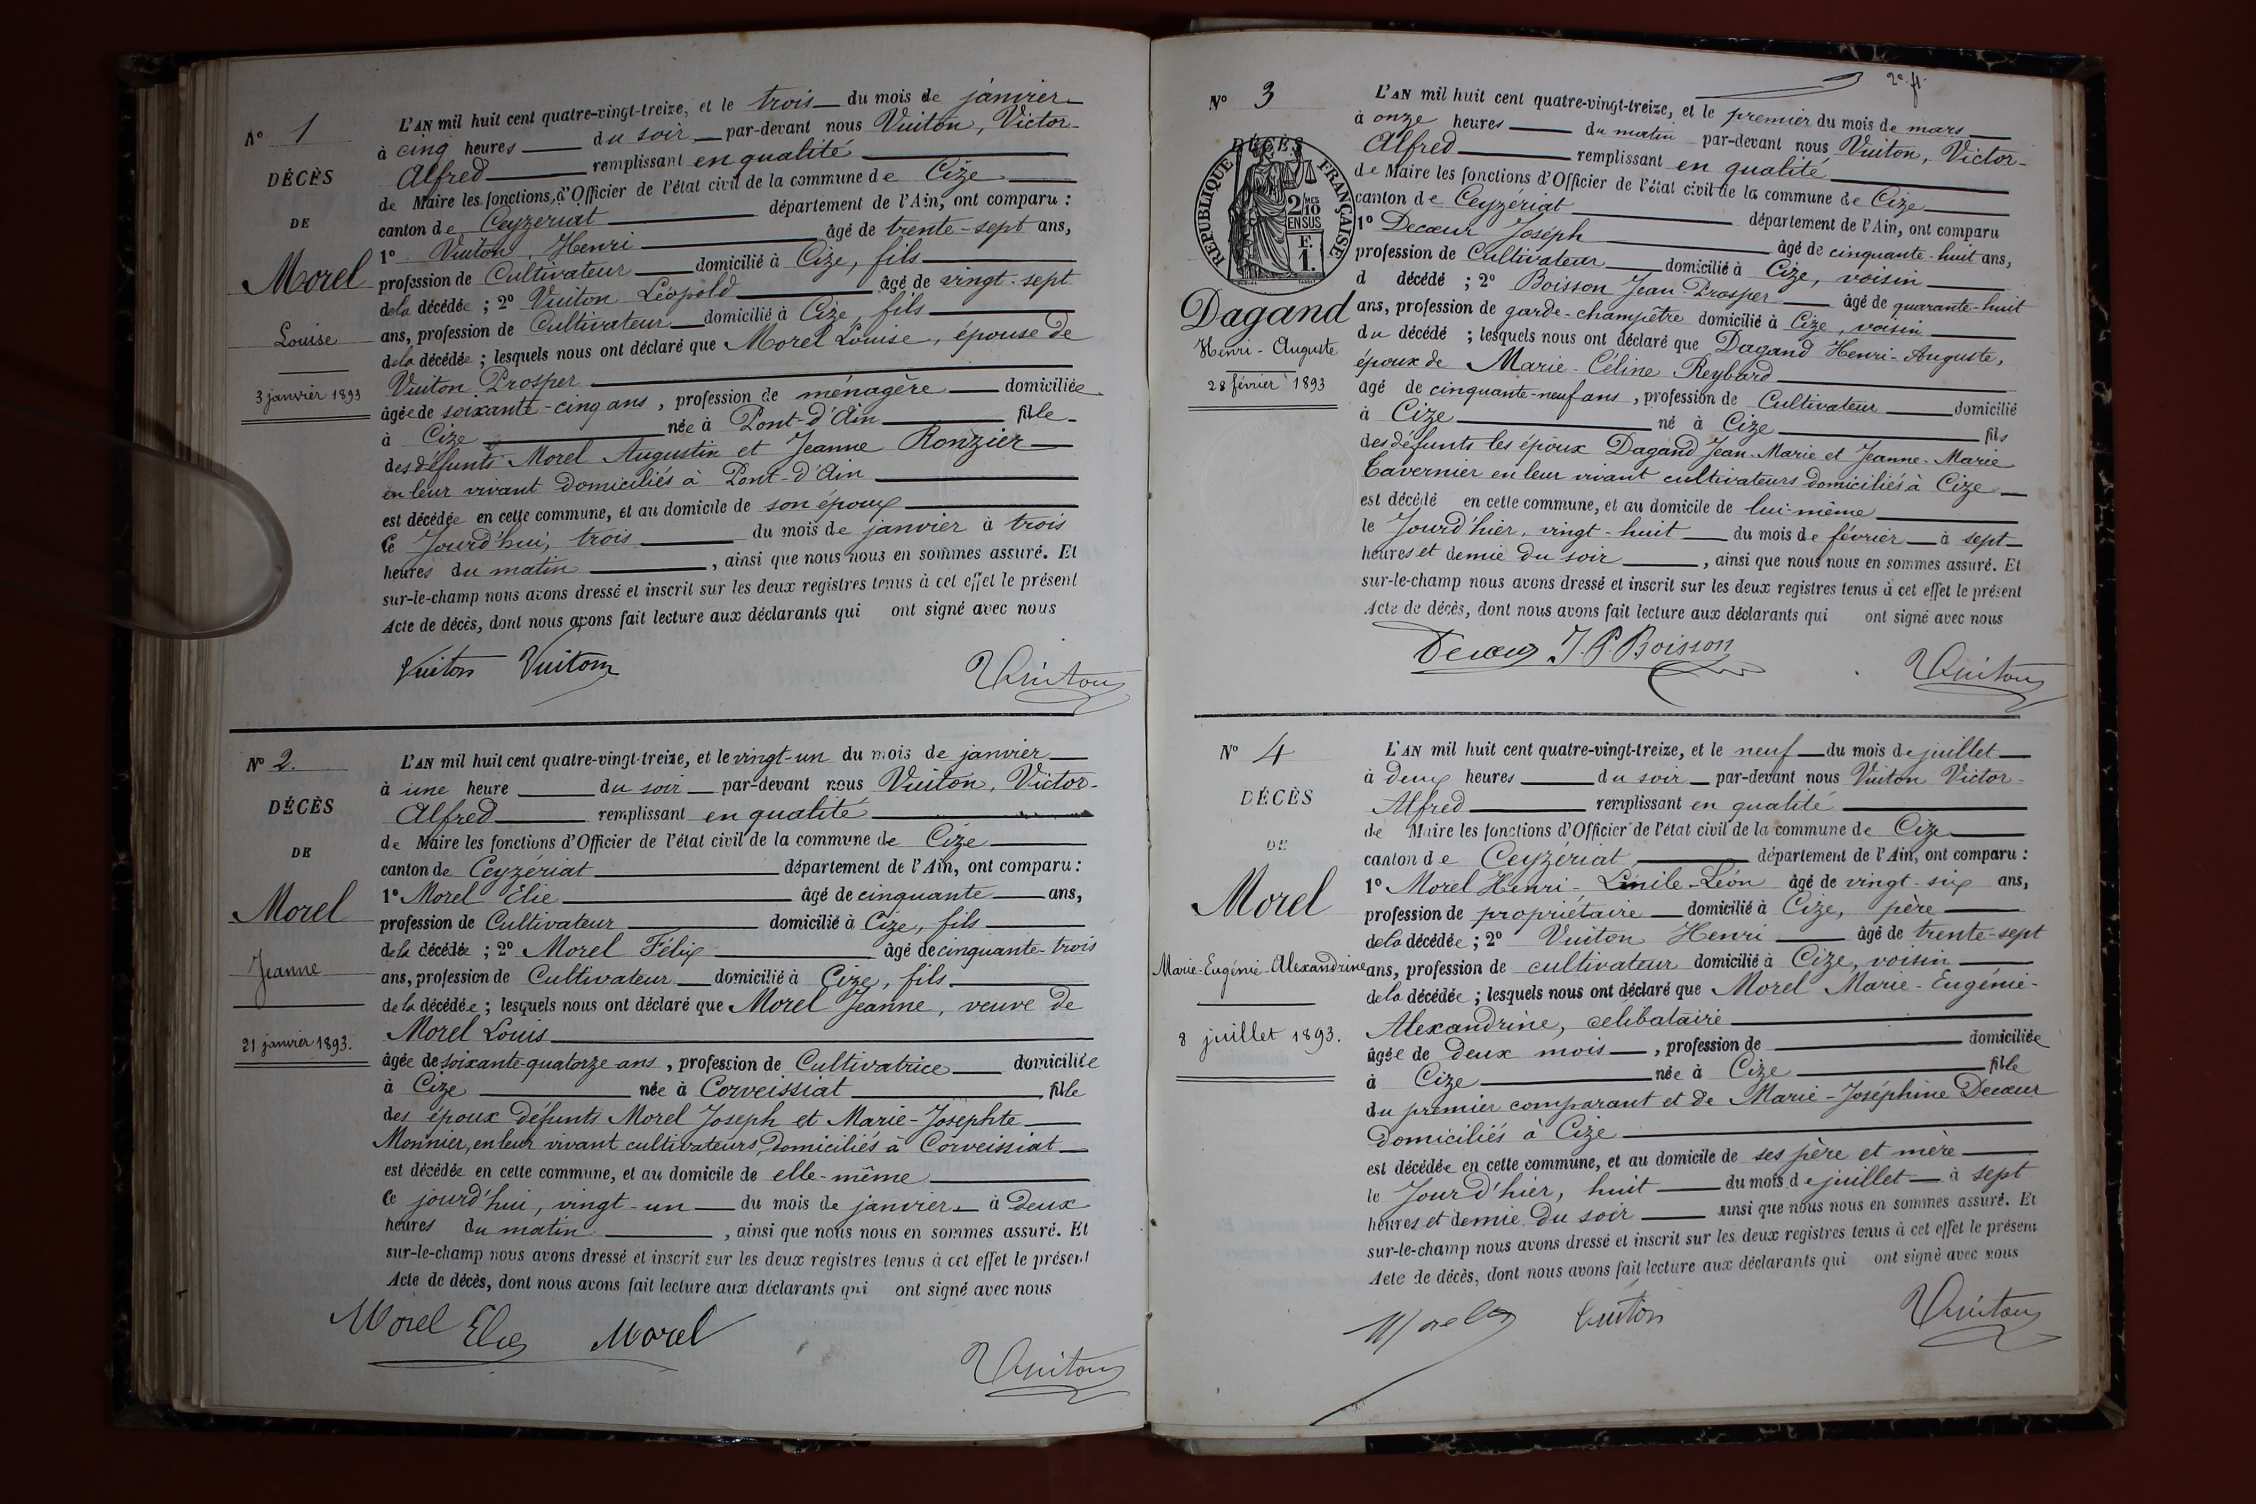 N° 1
DÉCÈS
DE
Morel
Louise
3 janvier 1893
L'AN mil huit cent quatre-vingt-treize, et le trois du mois de janvier
à cinq heures du soir par-devant nous Vuiton, Victor-
Alfred remplissant en qualité
de Maire les fonctions d'Officier de l'état civil de la commune de Cize
canton de Ceyzériat département de l'Ain, ont comparu :
1° Vuiton, Henri âgé de trente-sept ans,
profession de Cultivateur domicilié à Cize, fils
de la décédée ; 2° Vuiton Léopold âgé de vingt-sept
ans, profession de Cultivateur domicilié à Cize, fils
de la décédée ; lesquels nous ont déclaré que Morel Louise, épouse de
Vuiton Prosper
âgée de soixante-cinq ans, profession de ménagère domiciliée
à Cize née à Pont-d'Ain fille
des défunts Morel Augustin et Jeanne Ronzier
en leur vivant domiciliés à Pont-d'Ain
est décédée en cette commune, et au domicile de son époux
Ce Jourd'hui, trois du mois de janvier à trois
heures du matin, ainsi que nous nous en sommes assuré. Et
sur-le-champ nous avons dressé et inscrit sur les deux registres tenus à cet effet le présent
Acte de décès, dont nous avons fait lecture aux déclarants qui ont signé avec nous
Vuiton Vuiton Vuiton
N° 2
DÉCÈS
DE
Morel
Jeanne
21 janvier 1893.
L'AN mil huit cent quatre-vingt-treize, et le vingt-un du mois de janvier
à une heure du soir par-devant nous Vuiton, Victor-
Alfred remplissant en qualité
de Maire les fonctions d'Officier de l'état civil de la commune de Cize
canton de Ceyzériat département de l'Ain, ont comparu :
1° Morel Elie âgé de cinquante ans,
profession de Cultivateur domicilié à Cize, fils
de la décédée ; 2° Morel Félix âgé de cinquante-trois
ans, profession de Cultivateur domicilié à Cize, fils
de la décédée ; lesquels nous ont déclaré que Morel Jeanne, veuve de
Morel Louis
âgée de soixante-quatorze ans, profession de Cultivatrice domiciliée
à Cize née à Corveissiat fille
des époux défunts Morel Joseph et Marie-Josephte
Monnier, en leur vivant cultivateurs, domiciliés à Corveissiat
est décédée en cette commune, et au domicile de elle-même
Ce jourd'hui, vingt-un du mois de janvier à deux
heures du matin, ainsi que nous nous en sommes assuré. Et
sur-le-champ nous avons dressé et inscrit sur les deux registres tenus à cet effet le présent
Acte de décès, dont nous avons fait lecture aux déclarants qui ont signé avec nous
Morel Elie Morel Vuiton
2e f.
N° 3
DÉCÈS
RÉPUBLIQUE FRANÇAISE
2/10 MES
EN SUS
F.
1.
Dagand
Henri-Auguste
28 février 1893
L'AN mil huit cent quatre-vingt-treize, et le premier du mois de mars
à onze heures du matin par-devant nous Vuiton, Victor-
Alfred remplissant en qualité
de Maire les fonctions d'Officier de l'état civil de la commune de Cize
canton de Ceyzériat département de l'Ain, ont comparu
1° Decœur Joseph âgé de cinquante-huit ans,
profession de Cultivateur domicilié à Cize, voisin
d décédé ; 2° Boisson Jean-Prosper âgé de quarante-huit
ans, profession de garde-champêtre domicilié à Cize, voisin
du décédé ; lesquels nous ont déclaré que Dagand Henri-Auguste,
époux de Marie-Céline Reybard
âgé de cinquante-neuf ans, profession de Cultivateur domicilié
à Cize né à Cize fils
des défunts les époux Dagand Jean-Marie et Jeanne-Marie
Tavernier en leur vivant cultivateurs domiciliés à Cize
est décédé en cette commune, et au domicile de lui-même
le Jourd'hier, vingt-huit du mois de février à sept
heures et demie du soir, ainsi que nous nous en sommes assuré. Et
sur-le-champ nous avons dressé et inscrit sur les deux registres tenus à cet effet le présent
Acte de décès, dont nous avons fait lecture aux déclarants qui ont signé avec nous
Decœur J. P. Boisson Vuiton
N° 4
DÉCÈS
DE
Morel
Marie-Eugénie-Alexandrine
8 juillet 1893.
L'AN mil huit cent quatre-vingt-treize, et le neuf du mois de juillet
à deux heures du soir par-devant nous Vuiton Victor-
Alfred remplissant en qualité
de Maire les fonctions d'Officier de l'état civil de la commune de Cize
canton de Ceyzériat département de l'Ain, ont comparu :
1° Morel Henri-Emile-Léon âgé de vingt-six ans,
profession de propriétaire domicilié à Cize, père
de la décédée ; 2° Vuiton Henri âgé de trente-sept
ans, profession de cultivateur domicilié à Cize, voisin
de la décédée ; lesquels nous ont déclaré que Morel Marie-Eugénie-
Alexandrine, célibataire
âgée de deux mois, profession de domiciliée
à Cize née à Cize fille
du premier comparant et de Marie-Joséphine Decœur
domiciliés à Cize
est décédée en cette commune, et au domicile de ses père et mère
le Jourd'hier, huit du mois de juillet à sept
heures et demie du soir ainsi que nous nous en sommes assuré. Et
sur-le-champ nous avons dressé et inscrit sur les deux registres tenus à cet effet le présent
Acte de décès, dont nous avons fait lecture aux déclarants qui ont signé avec nous
Morel Vuiton Vuiton